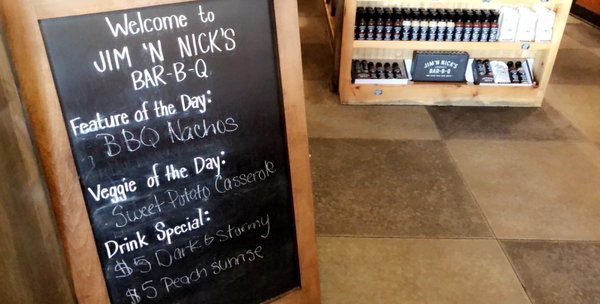 Welcome to
JIM 'N NICK'S
BAR-B-Q
Feature of the Day:
BBQ Nachos
Veggie of the Day:
Sweet Potato Casserole
Drink Special:
$5 Dark & Stormy
$5 Peach Sunrise
JIM 'N NICK'S
BAR-B-Q